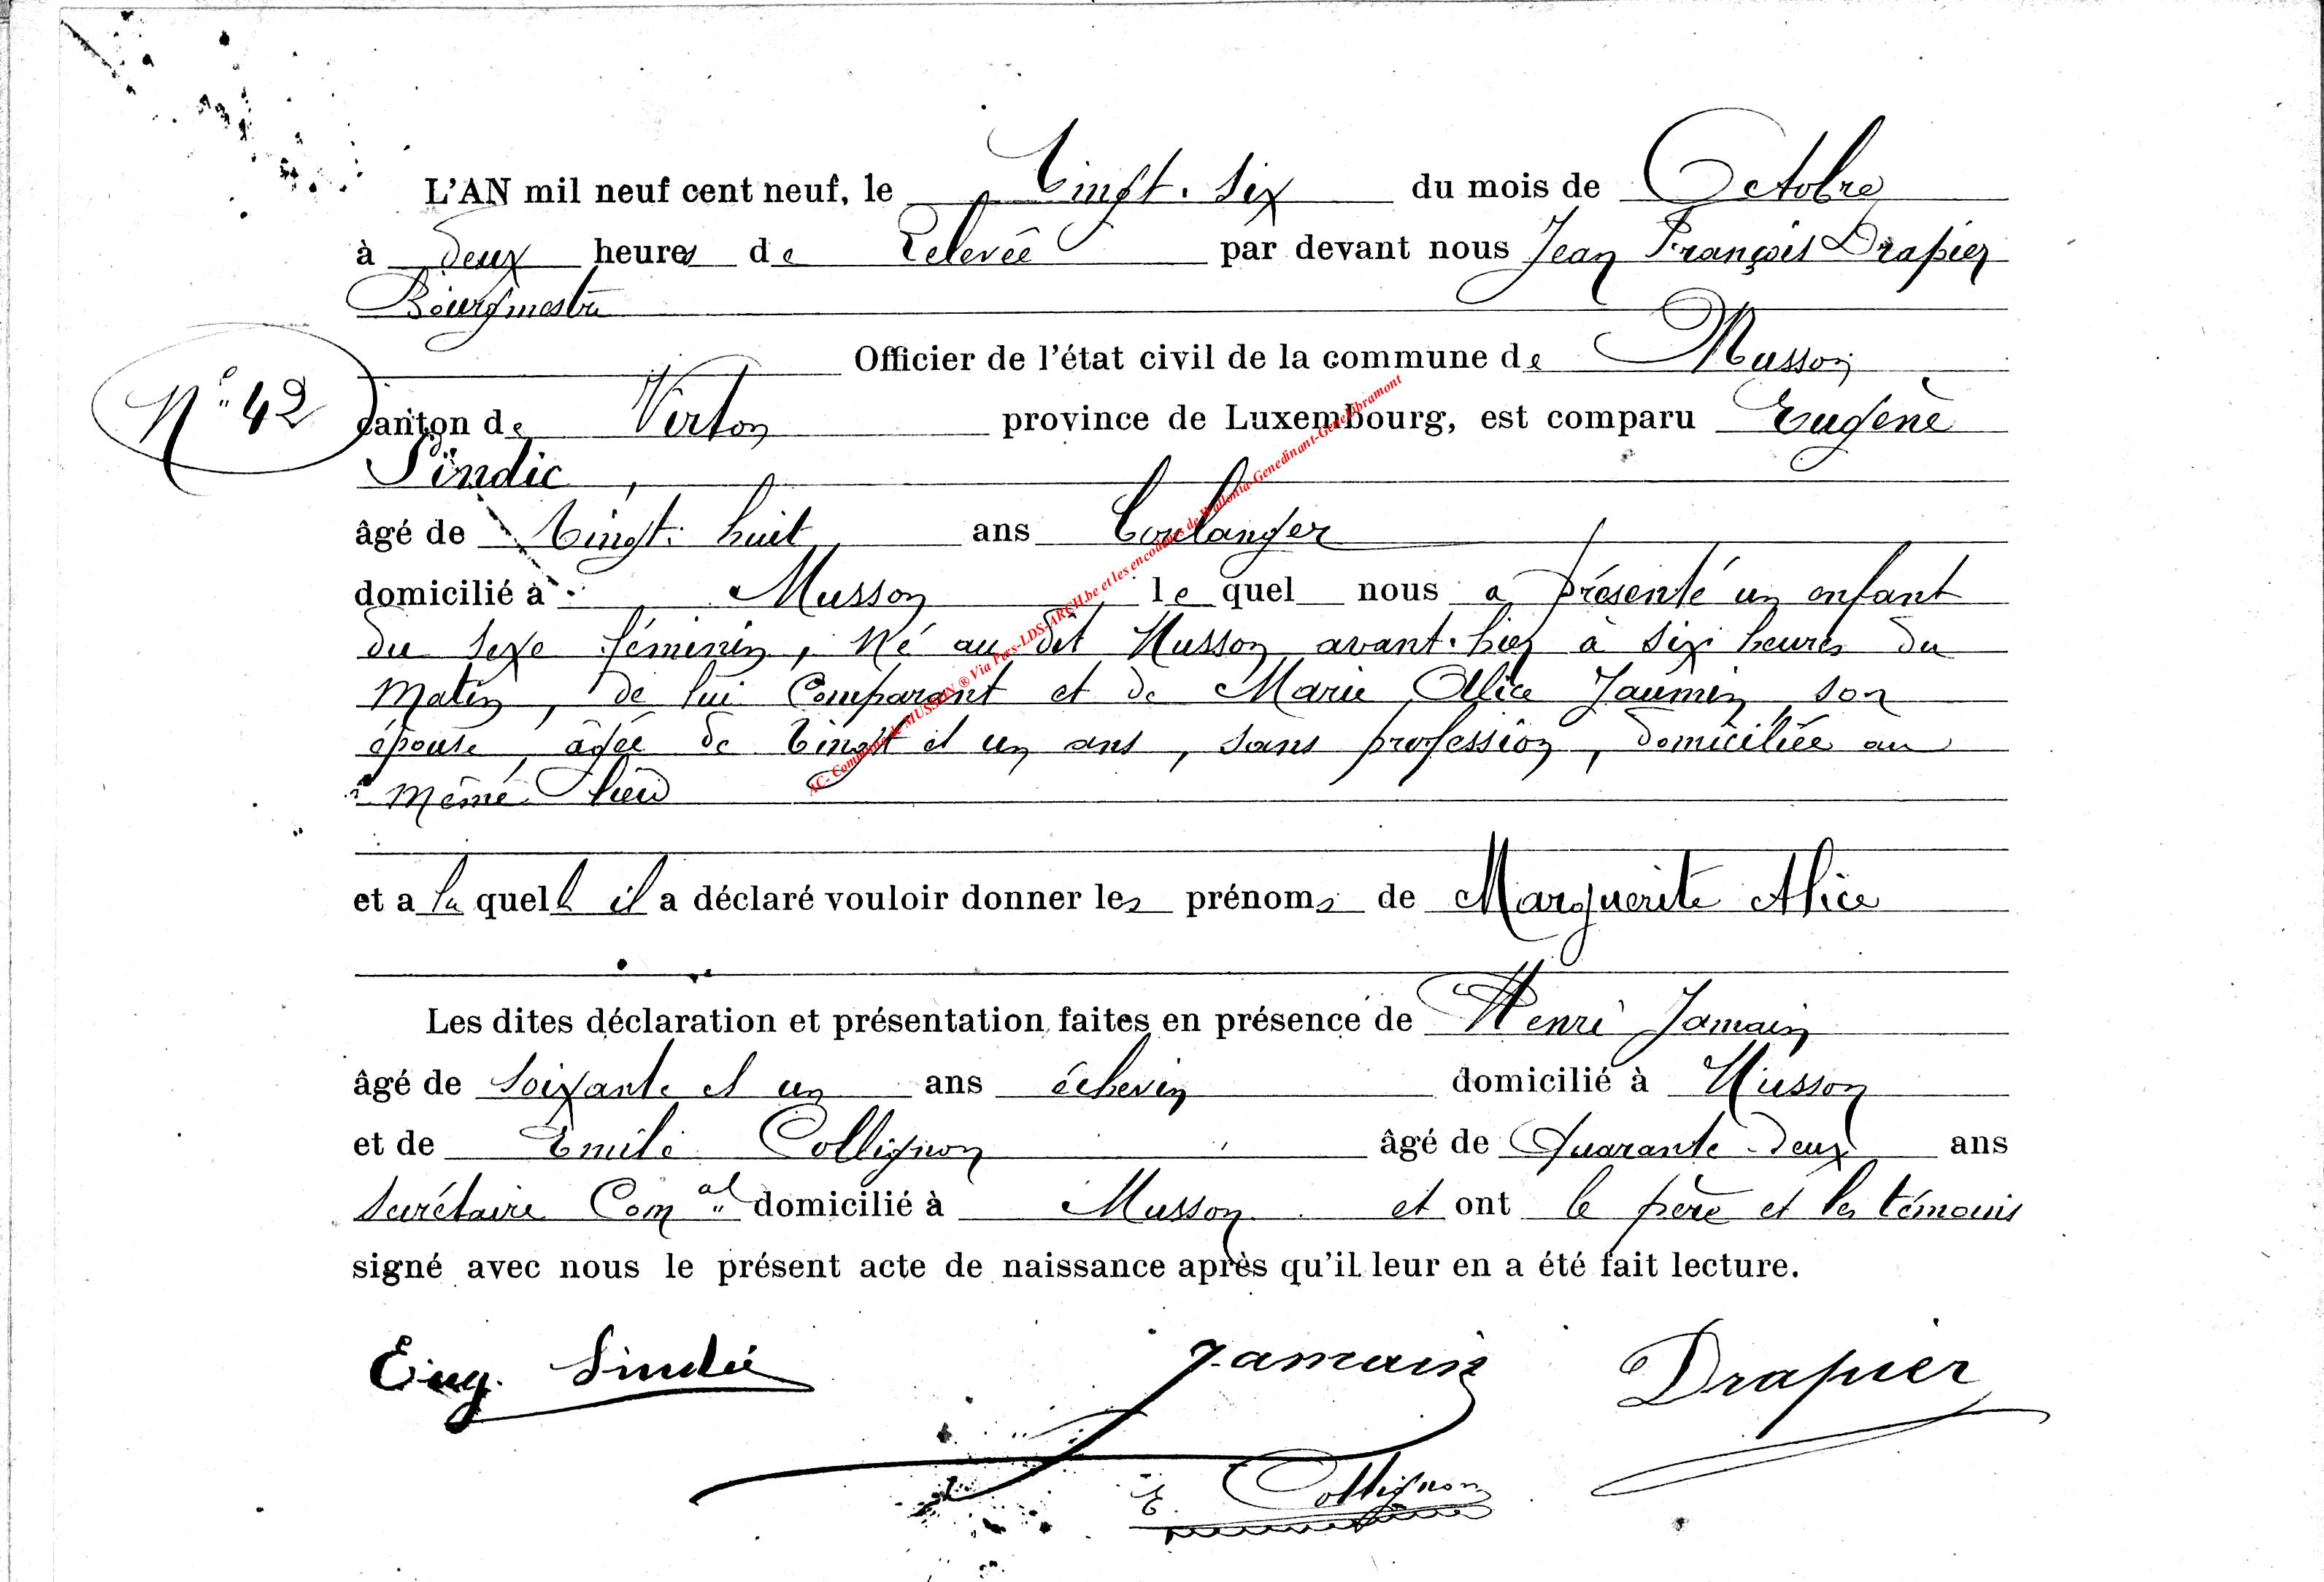 L'AN mil neuf cent neuf, le Vingt-six du mois de Octobre
à deux heures de Relevée par devant nous Jean François Drapier
Bourgmestre
Officier de l'état civil de la commune de Musson
N° 42
canton de Virton province de Luxembourg, est comparu Eugène
Sindic,
âgé de Vingt-huit ans boulanger
domicilié à Musson, lequel nous a présenté un enfant
du sexe féminin, né au dit Musson avant-hier à six heures du
matin, de lui comparant et de Marie Alice Jaumin, son
épouse, âgée de vingt et un ans, sans profession, domiciliée au
même lieu
et a laquell il a déclaré vouloir donner les prénoms de Marguerite Alice
Les dites déclaration et présentation faites en présence de Henri Jamain
âgé de soixante et un ans échevin domicilié à Musson
et de Emile Collignon âgé de Quarante-deux ans
secrétaire Com.al domicilié à Musson et ont le père et les témoins
signé avec nous le présent acte de naissance après qu'il leur en a été fait lecture.
Eug. Sindic Jamain Drapier
E. Collignon
AC- Commune de MUSSON ® Via Pers-LDS-ARCH.be et les encodeurs de Wallonia-Genedinant-GeneLibramont